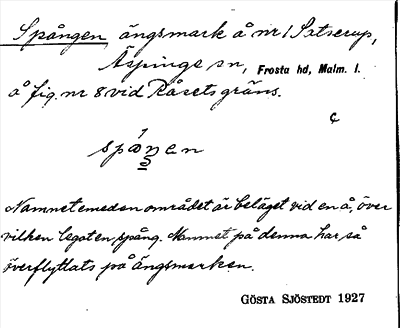 Spången, ängsmark å nr 1 Satserup,
Äspinge sn, Frosta hd, Malm. l.
å fig. nr 8 vid Råsets gräns.
¢
spaŋen
Namnet emedan området är beläget vid en å, över
vilken legat en spång. Namnet på denna har så
överflyttats på ängsmarken.
GÖSTA SJÖSTEDT 1927